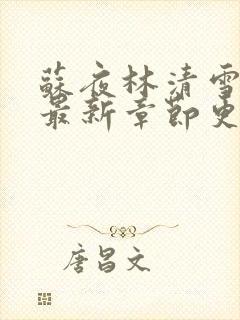 蘇夜林清雪
最新章節更
唐昌文